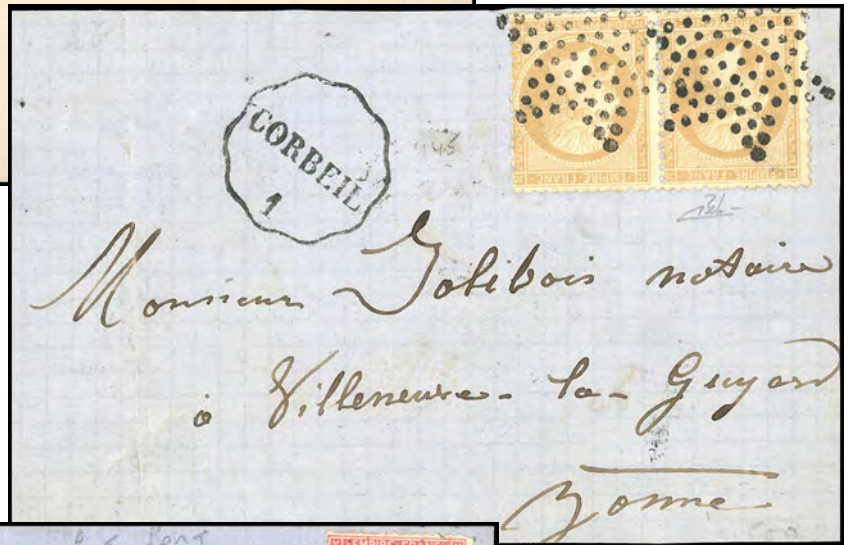 CORBEIL
1
EMPIRE FRANC
EMPIRE FRANC
Monsieur Jolibois notaire
à Villeneuve-la-Guyard
Yonne
EMPIRE FRANC